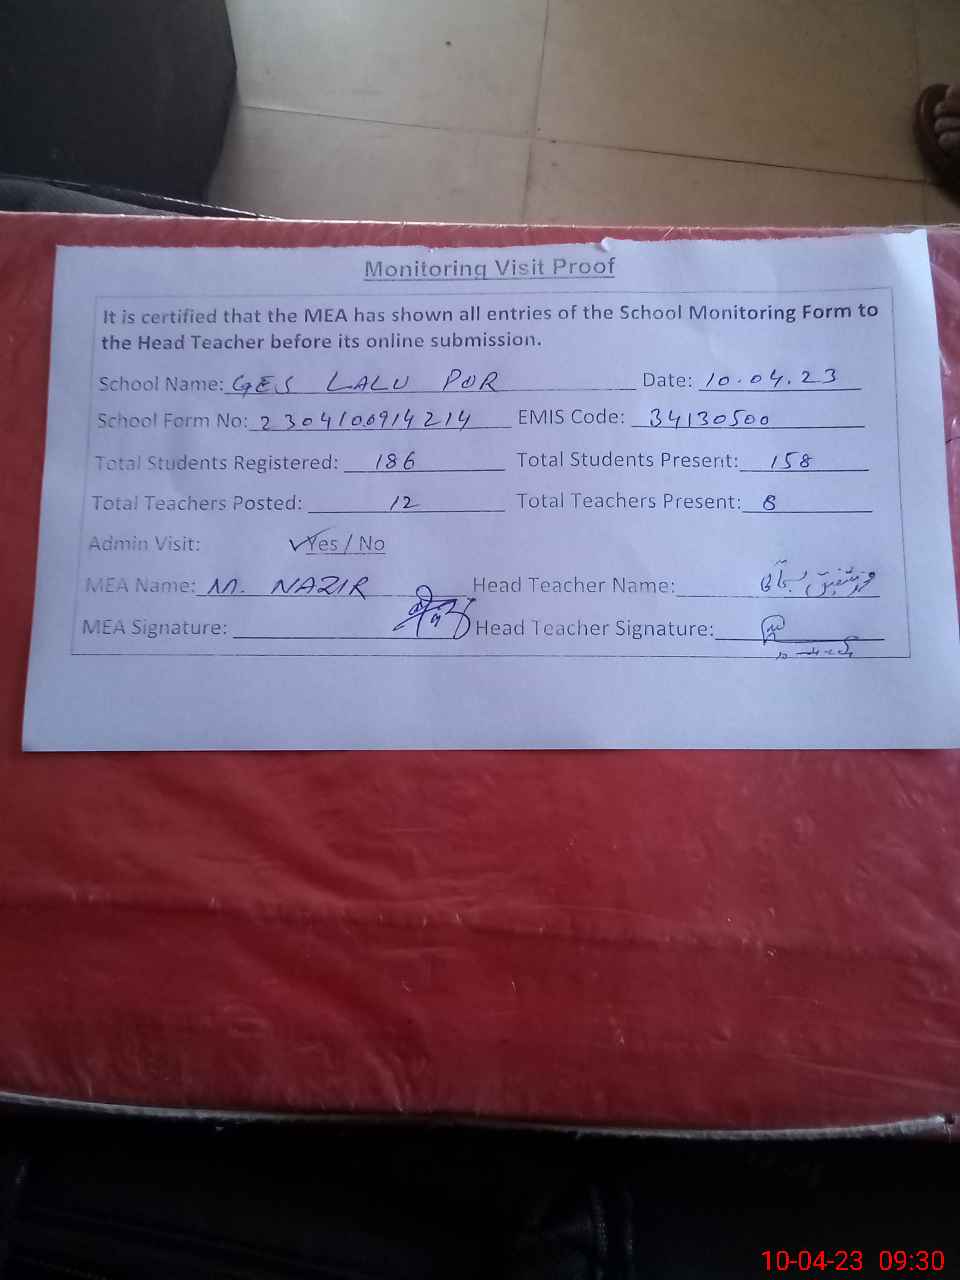 Monitoring Visit Proof
It is certified that the MEA has shown all entries of the School Monitoring Form to
the Head Teacher before its online submission.
School Name: GES LALU POR Date: 10.04.23
School Form No: 2304100914214 EMIS Code: 34130500
Total Students Registered: 186 Total Students Present: 158
Total Teachers Posted: 12 Total Teachers Present: 8
Admin Visit: Yes / No
MEA Name: M. NAZIR Head Teacher Name:
MEA Signature: Head Teacher Signature:
10-04-23 09:30